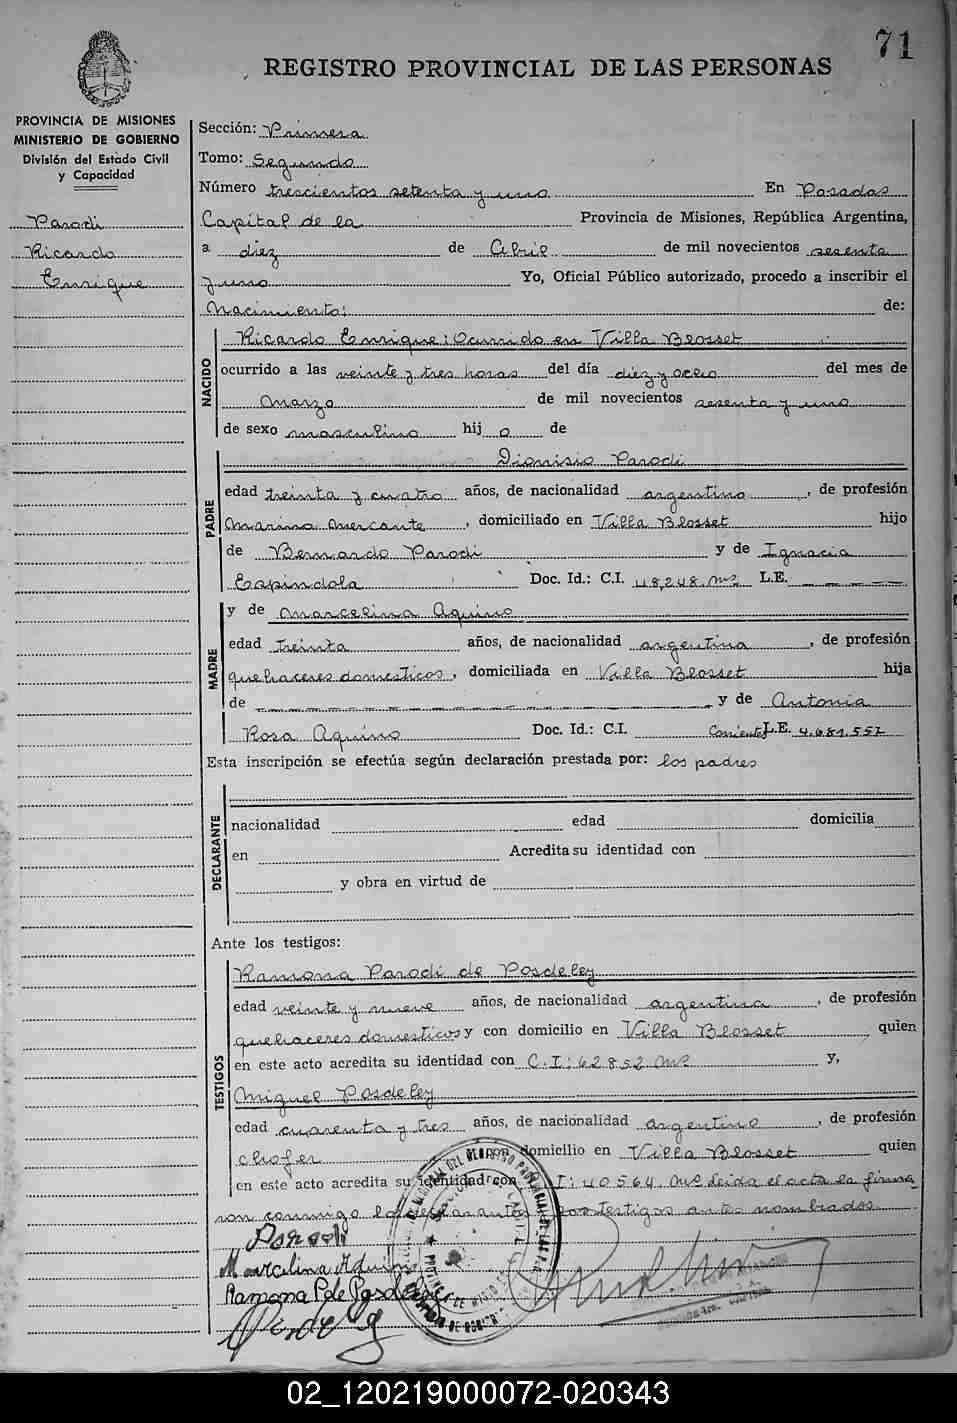 71
REGISTRO PROVINCIAL DE LAS PERSONAS
PROVINCIA DE MISIONES
MINISTERIO DE GOBIERNO
División del Estado Civil
y Capacidad
Parodi
Ricardo
Enrique
Sección: Primera
Tomo: Segundo
Número trescientos setenta y uno En Posadas
Capital de la Provincia de Misiones, República Argentina,
a diez de Abril de mil novecientos sesenta
y uno Yo, Oficial Público autorizado, procedo a inscribir el
Nacimiento: de:
NACIDO
Ricardo Enrique: Ocurrido en Villa Blosset
ocurrido a las veinte y tres horas del día diez y ocho del mes de
Marzo de mil novecientos sesenta y uno
de sexo masculino hij o de
PADRE
Dionisio Parodi
edad treinta y cuatro años, de nacionalidad argentino, de profesión
Marino Mercante, domiciliado en Villa Blosset hijo
de Bernardo Parodi y de Ignacia
Espindola Doc. Id.: C.I. 48,248. Mnes L.E.
MADRE
y de Marcelina Aquino
edad treinta años, de nacionalidad argentina, de profesión
quehaceres domesticos, domiciliada en Villa Blosset hija
de y de Antonia
Rosa Aquino Doc. Id.: C.I. Corrientes L.E. 4.681.557
Esta inscripción se efectúa según declaración prestada por: los padres
DECLARANTE
nacionalidad edad domicilia
en Acredita su identidad con
y obra en virtud de
Ante los testigos:
TESTIGOS
Ramona Parodi de Posdeley
edad veinte y nueve años, de nacionalidad argentina, de profesión
quehaceres domesticos y con domicilio en Villa Blosset quien
en este acto acredita su identidad con C.I: 62852 Mnes y,
Miguel Posdeley
edad cuarenta y tres años, de nacionalidad argentino, de profesión
chofer domicilio en Villa Blosset quien
en este acto acredita su identidad con I: 40564. Mnes leida el acta la firma
ron conmigo los declarantes y los testigos antes nombrados.
Parodi
Marcelina Aquino
Ramona P de Posdeley
02_120219000072-020343